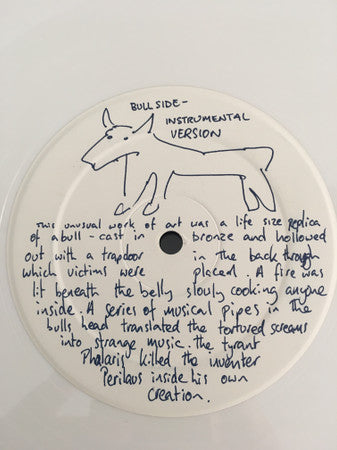 BULL SIDE -
INSTRUMENTAL
VERSION
this unusual work of art was a life size replica
of a bull - cast in bronze and hollowed
out with a trapdoor in the back through
which victims were placed. A fire was
lit beneath the belly slowly cooking anyone
inside. A series of musical pipes in the
bulls head translated the tortured screams
into strange music. the tyrant
Phalaris killed the inventer
Perilaus inside his own
creation.